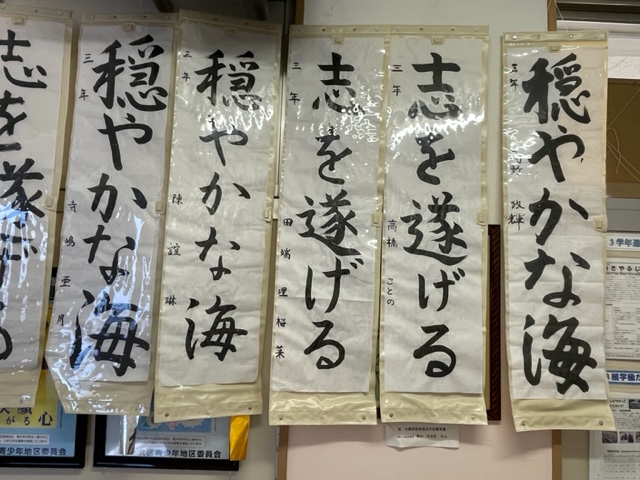 穏やかな海
三年
政輝
志を遂げる
三年 高橋ことの
志を遂げる
三年 田端理桜菜
穏やかな海
三年 陳誼琳
穏やかな海
三年 寺嶋亜月
志を遂げる
3学年通
組学級だ
心
青少年地区委員会
北区青少年地区委員会